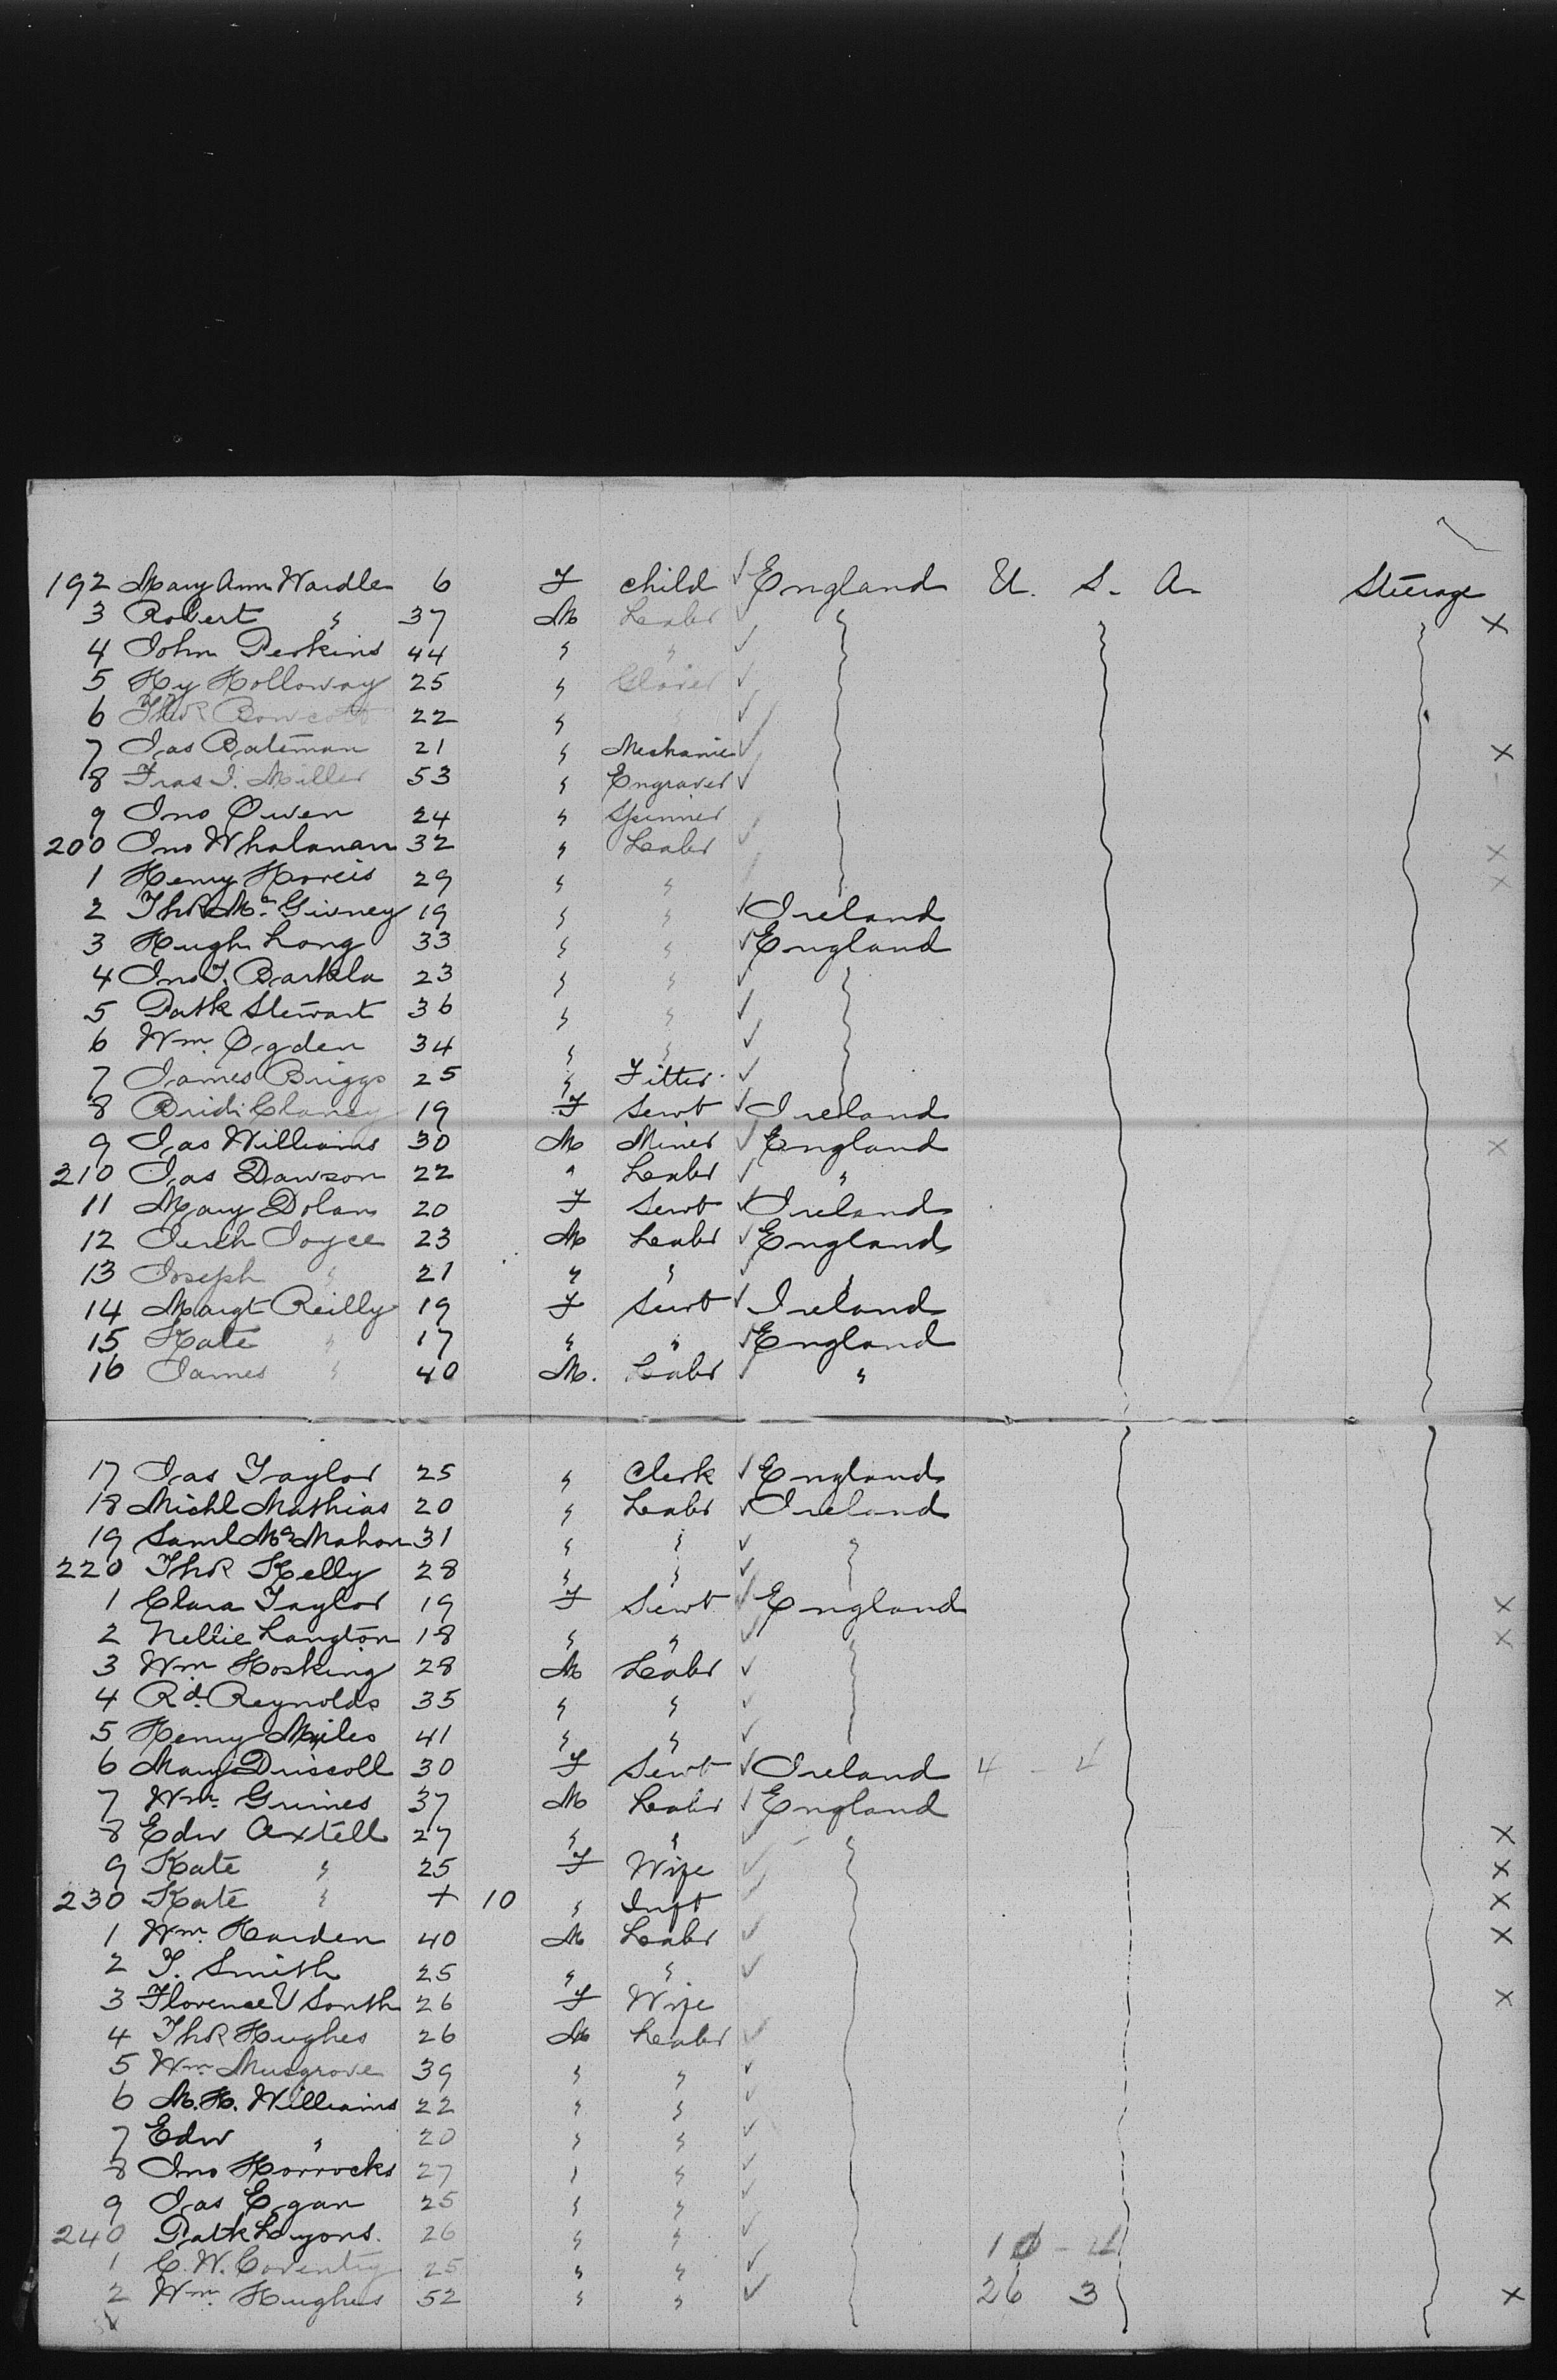 192 Mary Ann Wardle 6 F child ✓ England U. S. A. Steerage
3 Robert " 37 M Labr ✓ " ×
4 John Perkins 44 " " ✓
5 Hy Holloway 25 " ✓
6 Thos Bowcott 22 " " ✓
7 Jas Bateman 21 " Mechanic ✓ ×
8 Fras J. Miller 53 " Engraver ✓
9 Jno Owen 24 " Spinner ✓
200 Jno Whalanan 32 " Labr ✓ ×
1 Henry Harris 29 " " ×
2 Thos McGivney 19 " " ✓ Ireland
3 Hugh Long 33 " " ✓ England
4 Jno T. Barkla 23 " " ✓ "
5 Patk Stewart 36 " " ✓
6 Wm. Ogden 34 " " ✓
7 James Briggs 25 " Fitter ✓
8 Bridt Clancy 19 F Servt ✓ Ireland
9 Jas Williams 30 M Miner ✓ England ×
210 Jas Dawson 22 " Labr ✓ "
11 Mary Dolan 20 F Servt ✓ Ireland
12 Joyce 23 M Labr ✓ England
13 Joseph " 21 " " ✓ "
14 Margt Reilly 19 F Servt ✓ Ireland
15 Kate " 17 " " ✓ England
16 James " 40 M. Labr ✓ "
17 Jas Taylor 25 " Clerk ✓ England
18 Michl Mathias 20 " Labr ✓ Ireland
19 Saml McMahon 31 " " ✓ "
220 Thos Kelly 28 " " ✓ "
1 Clara Taylor 19 F Servt ✓ England ×
2 Nellie Langton 18 " " ✓ " ×
3 Wm Hosking 28 M Labr ✓
4 Rd. Reynolds 35 " " ✓
5 Henry Miles 41 " " ✓
6 Mary Driscoll 30 F Servt ✓ Ireland 4 - 4
7 Wm. Grimes 37 M Labr ✓ England
8 Edw Axtell 27 " " ✓ " ×
9 Kate " 25 F Wife ✓ ×
230 Kate " + 10 " Inft ✓ ×
1 Wm. Harden 40 M Labr ✓ ×
2 T. Smith 25 " " ✓
3 Florence V Smith 26 F Wife ×
4 Thos Hughes 26 M Labr ✓
5 Wm. Musgrove 39 " " ✓
6 M. H. Williams 22 " " ✓
7 Edw " 20 " " ✓
8 Jno Horrocks 27 " " ✓
9 Jas Egan 25 " " ✓
240 Patk Lyons. 26 " " ✓ 10 - 4
1 C. W. Coventry 25 " " ✓
2 Wm. Hughes 52 " " ✓ 26 3 ×